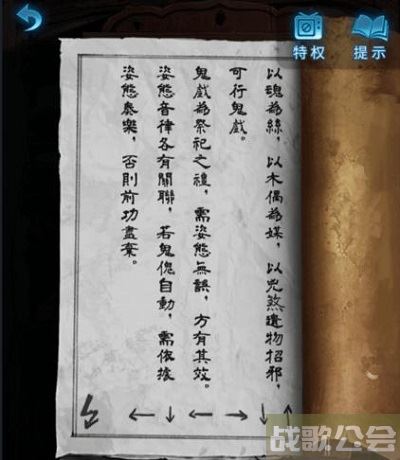 特权 提示
以魂為絲，以木偶為媒，以兇煞遺物招邪，
可行鬼戲。
鬼戲為祭祀之禮，需姿態無誤，方有其效。
姿態音律各有關聯，若鬼傀自動，需依據
姿態奏樂，否則前功盡棄。
←↓←→↓↑
战歌公会